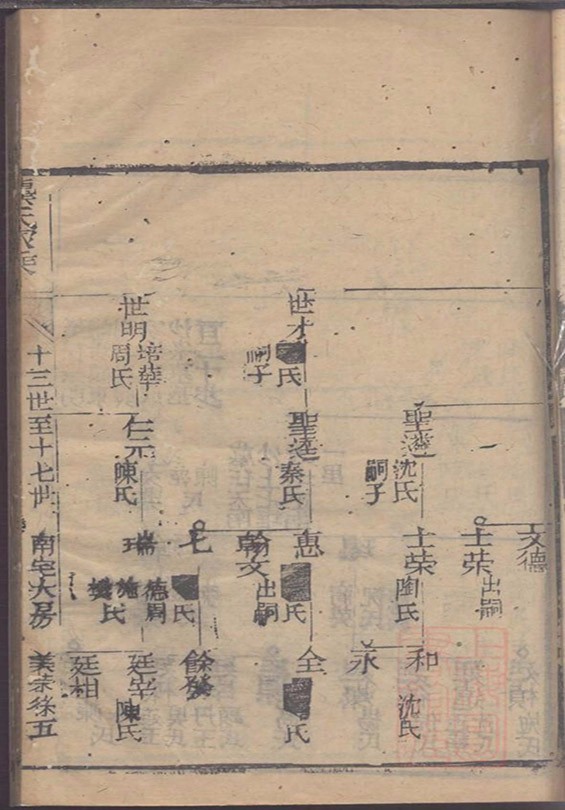 文德
士荣
出嗣
聖遴
沈氏
嗣子
士荣
陶氏
和
沈氏
永
世才
氏
嗣子
聖達
秦氏
惠
氏
全
氏
翰文
出嗣
氏
餘發
世明
培華
周氏
仁元
陳氏
瑞
德周
施氏
廷宰
陳氏
廷相
十三世至十七世
南宅大房
美荣徐五